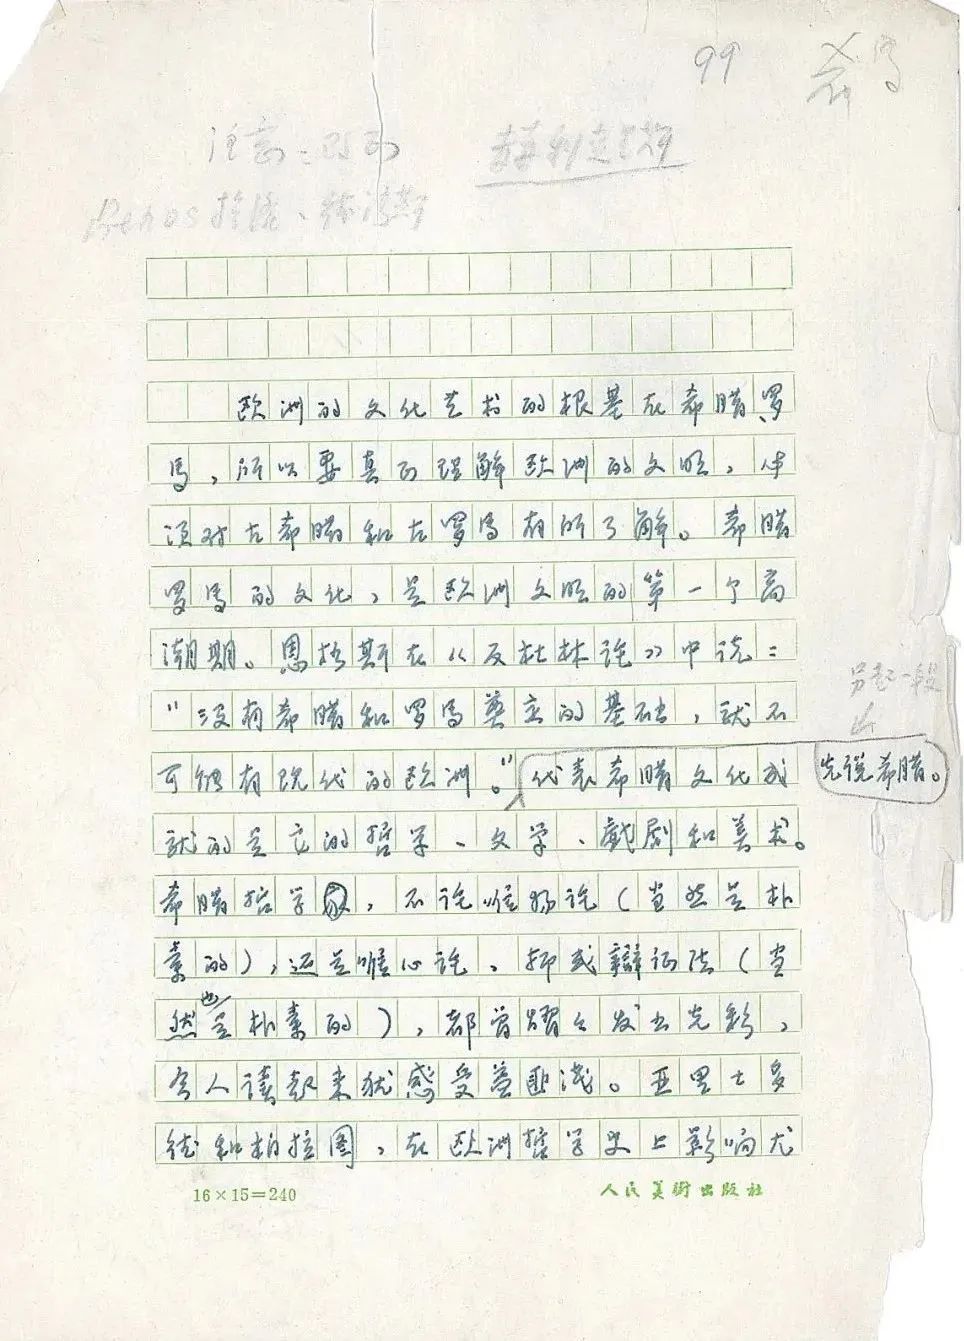 99
欧洲的文化艺术的根基在希腊罗
马，所以要真正理解欧洲的文明，必
须对古希腊和古罗马有所了解。希腊
罗马的文化，是欧洲文明的第一个高
潮期。恩格斯在《反杜林论》中说：
“没有希腊和罗马奠定的基础，就不
可能有现代的欧洲。”代表希腊文化成
另起一段
先说希腊。
就的是它的哲学、文学、戏剧和美术。
希腊哲学家，不论唯物论（当然是朴
素的），还是唯心论，抑或辩证法（当
然也是朴素的），都曾耀々发出光彩，
令人读起来犹感受益匪浅。亚里士多
德和柏拉图，在欧洲哲学史上影响尤
16×15=240
人民美術出版社